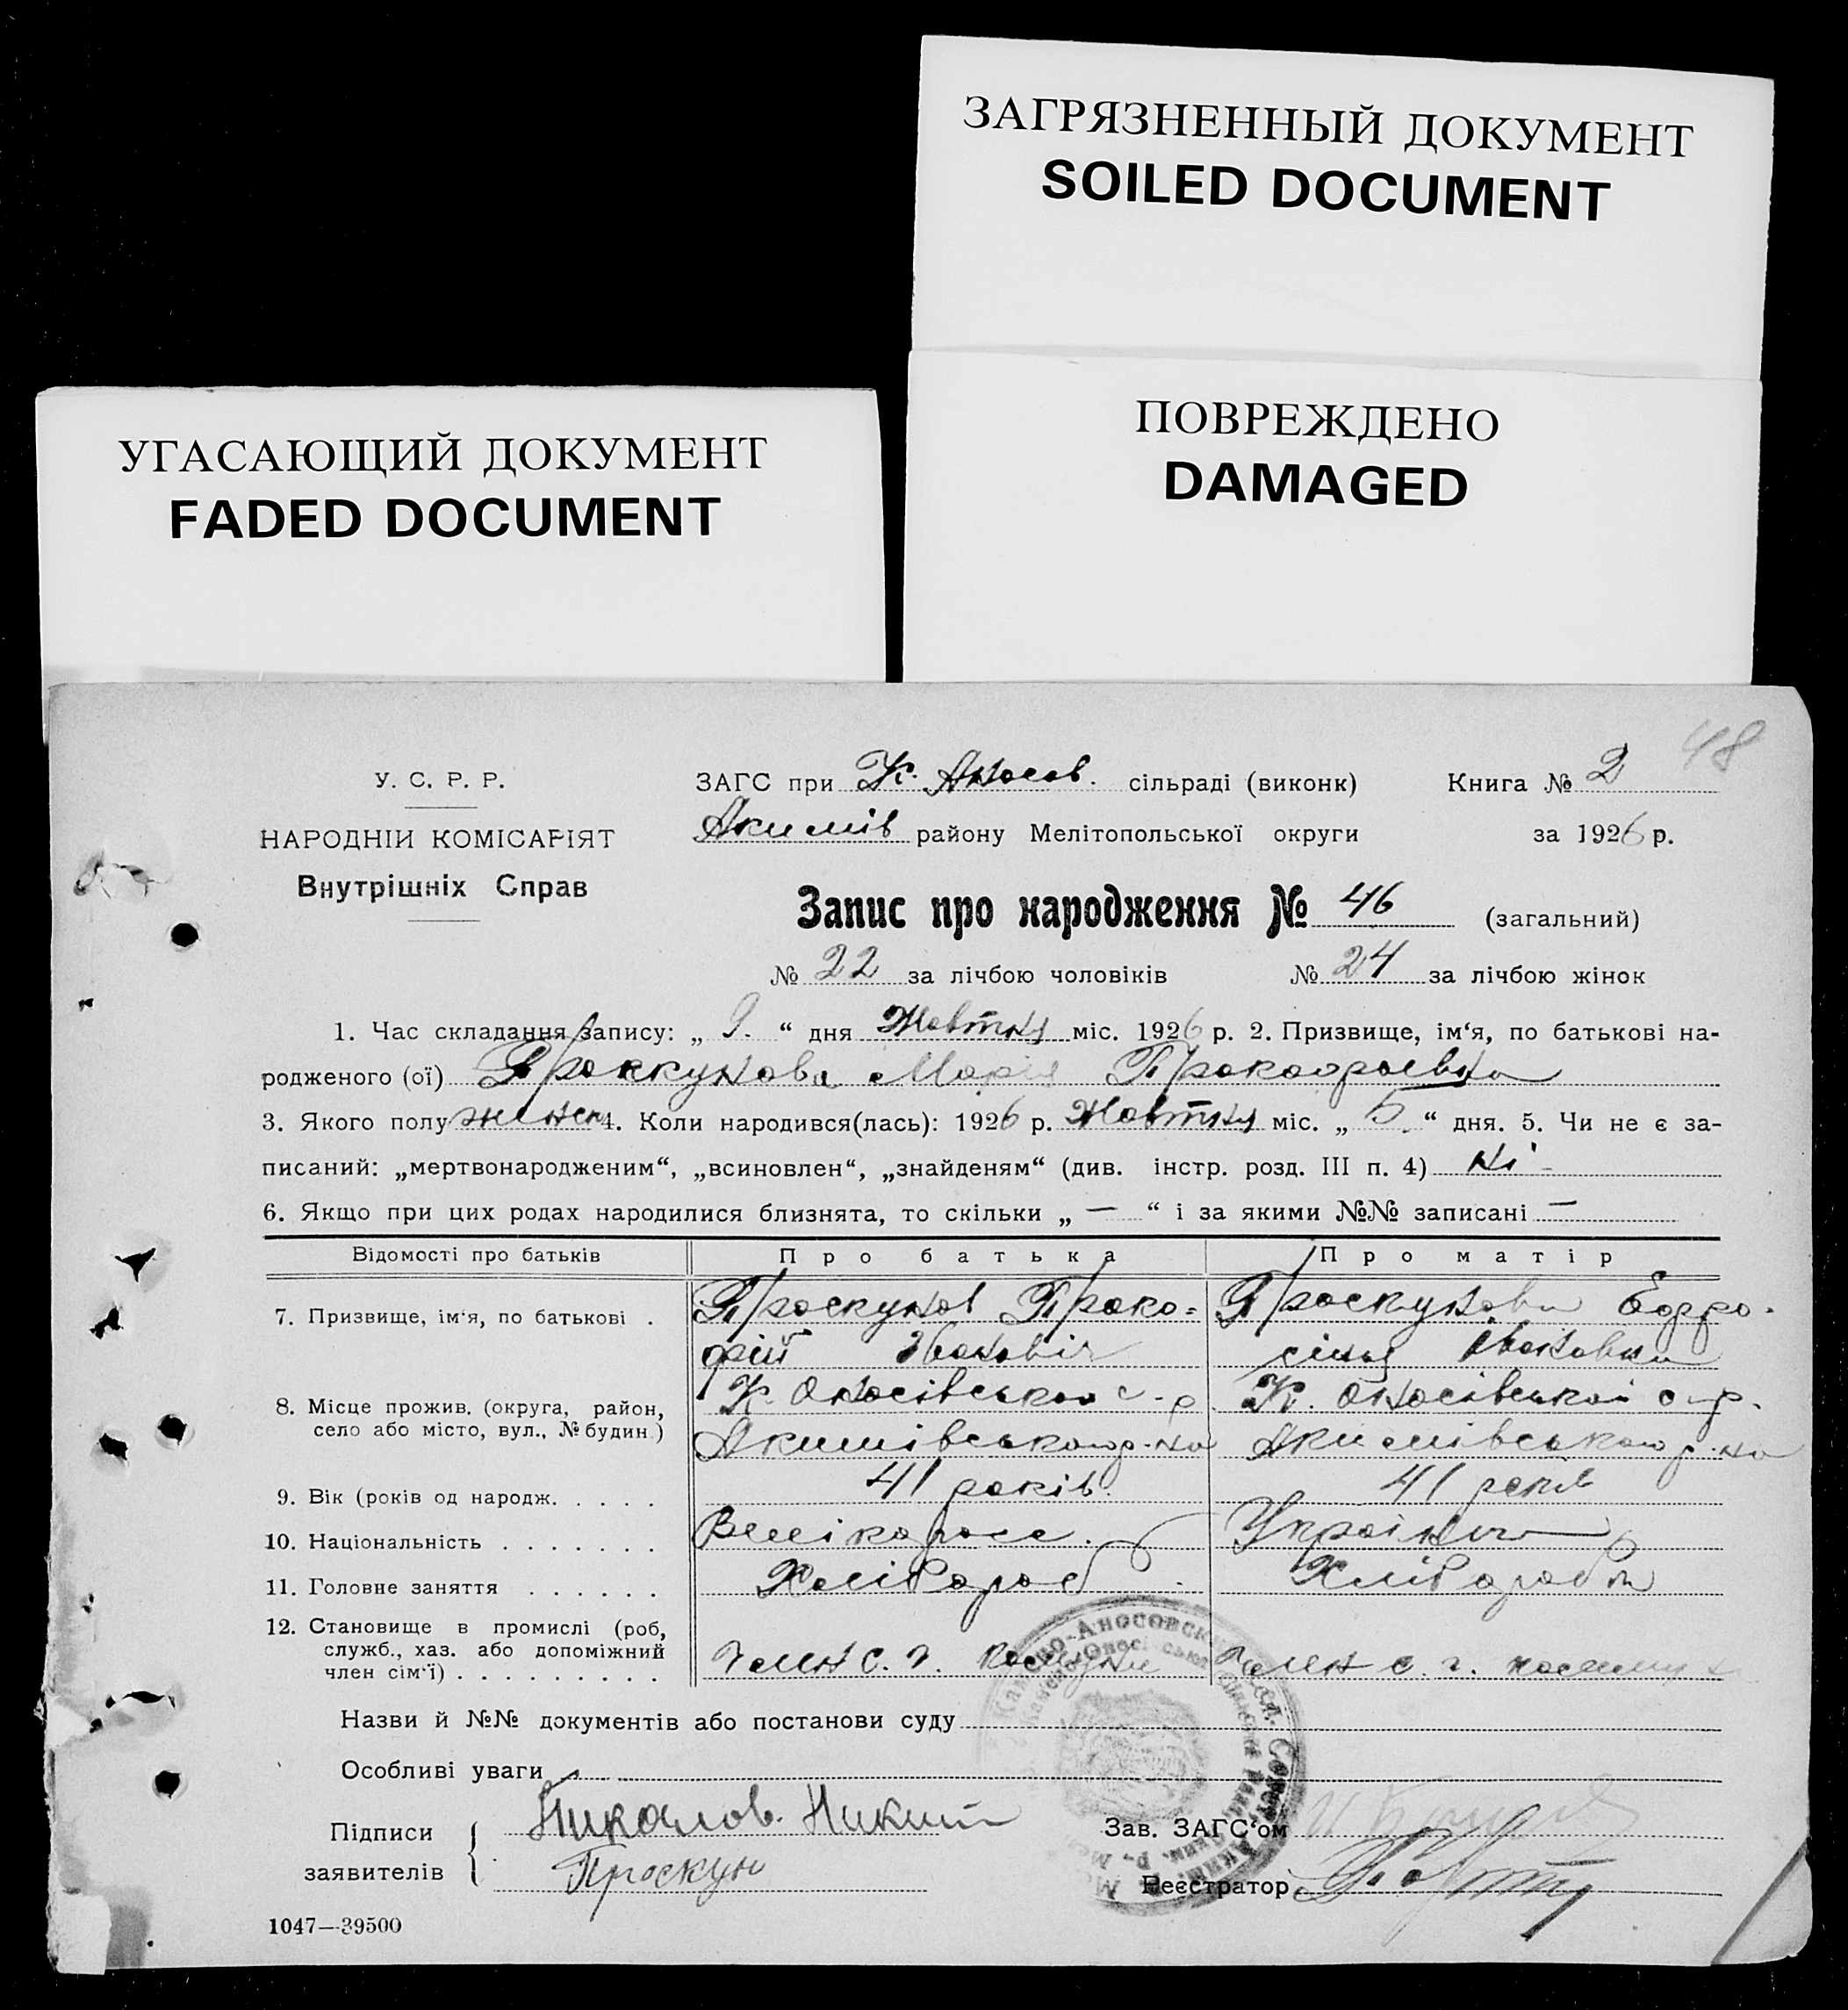 ЗАГРЯЗНЕННЫЙ ДОКУМЕНТ
SOILED DOCUMENT
УГАСАЮЩИЙ ДОКУМЕНТ
FADED DOCUMENT
ПОВРЕЖДЕНО
DAMAGED
48
У. С. Р. Р.
НАРОДНІЙ КОМІСАРІЯТ
Внутрішніх Справ
ЗАГС при К. Аносов. сільраді (виконк) Книга № 2
Акимів району Мелітопольської округи за 1926 р.
Запис про народження № 46 (загальний)
№ 22 за лічбою чоловіків № 24 за лічбою жінок
1. Час складання запису: „ 9. “ дня Жовтня міс. 1926 р. 2. Призвище, ім‘я, по батькові на-
родженого (ої) Проскунова Марія Прокофьевна
3. Якого полу женск 4. Коли народився(лась): 1926 р. Жовтня міс. „ 5. “ дня. 5. Чи не є за-
писаний: „мертвонародженим“, „всиновлен“, „знайденям“ (див. інстр. розд. III п. 4) Ні -
6. Якщо при цих родах народилися близнята, то скільки „ — “ і за якими №№ записані —
Відомості про батьків Про батька Про матір
7. Призвище, ім‘я, по батькові . Проскунов Проко= Проскунова Ефро-
фій Іванович сінья Івановна
8. Місце прожив. (округа, район, К. Аносівськоі с-р К. Аносівськоі с-р.
село або місто, вул., № будин.) Акимівського р-на Акимівського р-на
9. Вік (років од народж. . . . . 41 років. 41 років
10. Національність . . . . . . . Велікоросс. Українка
11. Головне заняття . . . . . . Хлібороб Хліборобка
12. Становище в промислі (роб,
служб., хаз. або допоміжний
член сім‘ї) . . . . . . . . . Член с. г. Член с. г.
Назви й №№ документів або постанови суду
Особливі уваги
Підписи Никит Зав. ЗАГС‘ом
заявителів Проскун Реєстратор
1047—39500